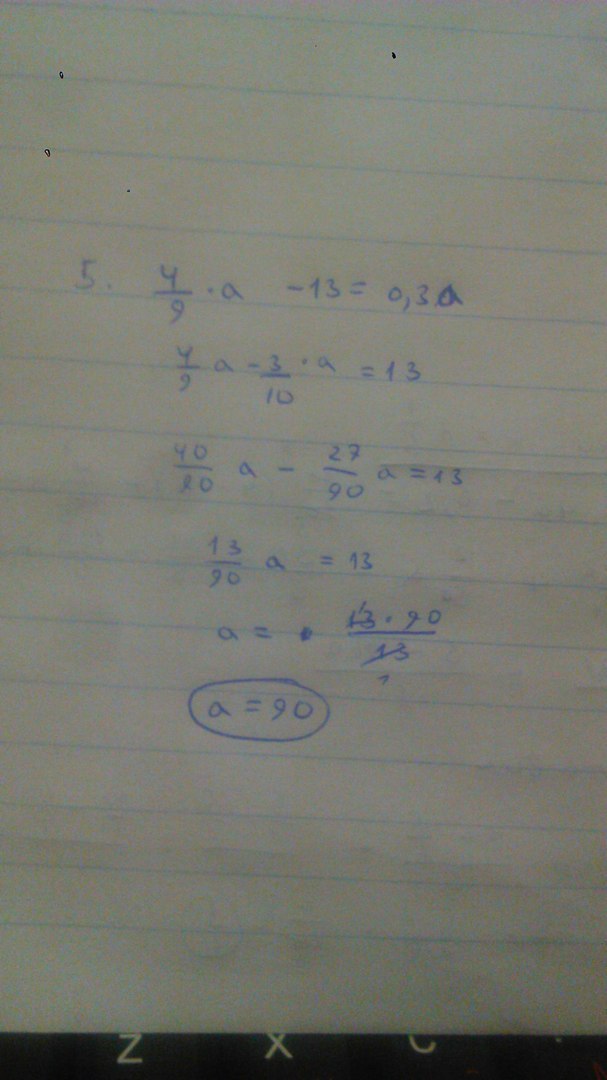 5. 4/9 · a - 13 = 0,3a
4/9 a - 3/10 · a = 13
40/90 a - 27/90 a = 13
13/90 a = 13
a = 13 · 90 / 13
1
1
a = 90
Z X C